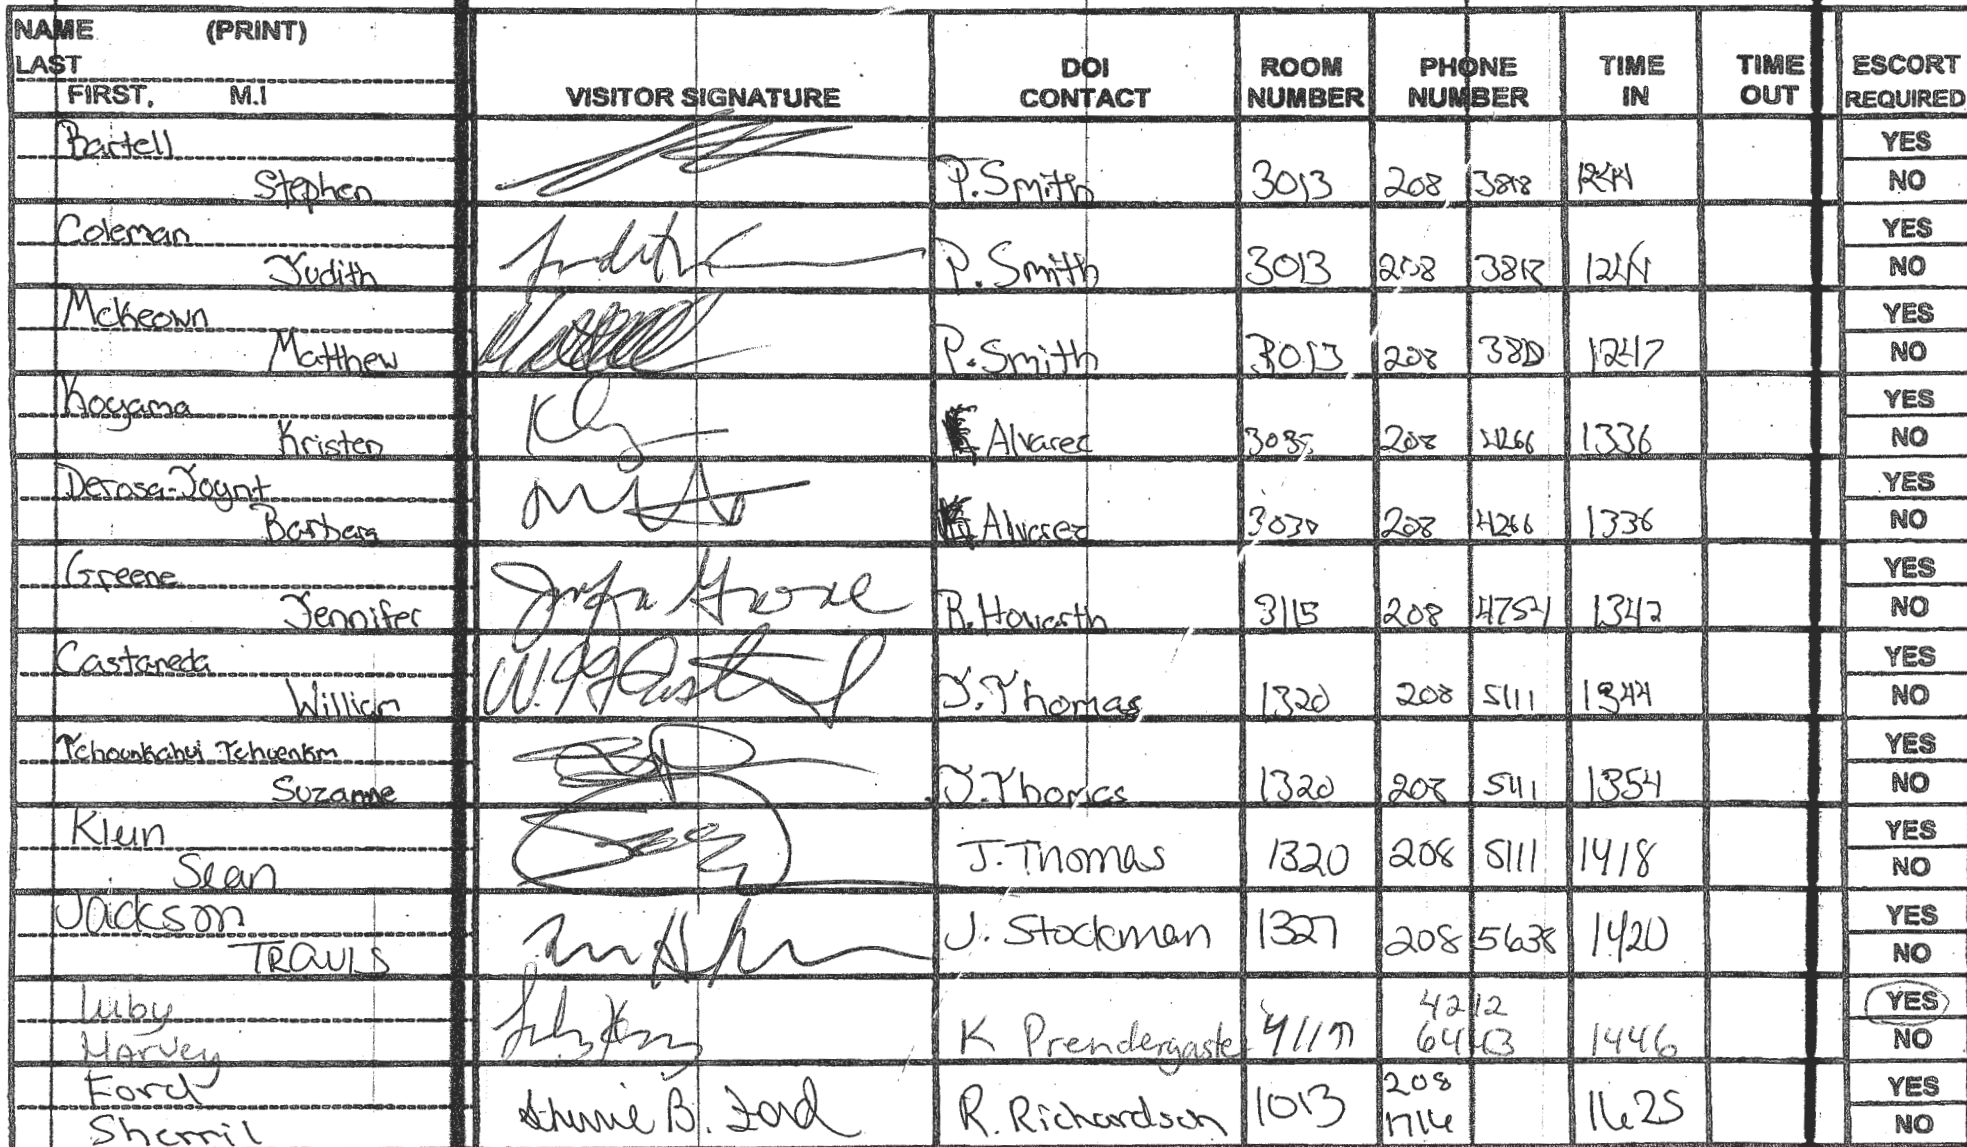 NAME (PRINT)
LAST
FIRST, M.I
VISITOR SIGNATURE
DOI CONTACT
ROOM NUMBER
PHONE NUMBER
TIME IN
TIME OUT
ESCORT REQUIRED
Bartell
Stephen P. Smith 3013 208 YES NO
Coleman
Judith P. Smith 3013 208 YES NO
McKeown
Matthew P. Smith 3013 208 1247 YES NO
Koyama
Kristen Alvarez 208 4266 1336 YES NO
Derosa-Joynt
Barbara Alvarez 208 4266 1336 YES NO
Greene
Jennifer R. Howarth 3115 208 4754 1342 YES NO
Castaneda
William J. Thomas 1320 208 5111 1344 YES NO
Suzanne J. Thomas 1320 208 5111 1354 YES NO
Klein
Sean J. Thomas 1320 208 5111 1418 YES NO
Jackson
TRAVIS J. Stockman 1327 208 5638 1420 YES NO
Luby
Harvey K Prendergaste 4212 6443 1446 YES NO
Ford
Sherril Sherrie B. Ford R. Richardson 1013 208 1714 1625 YES NO